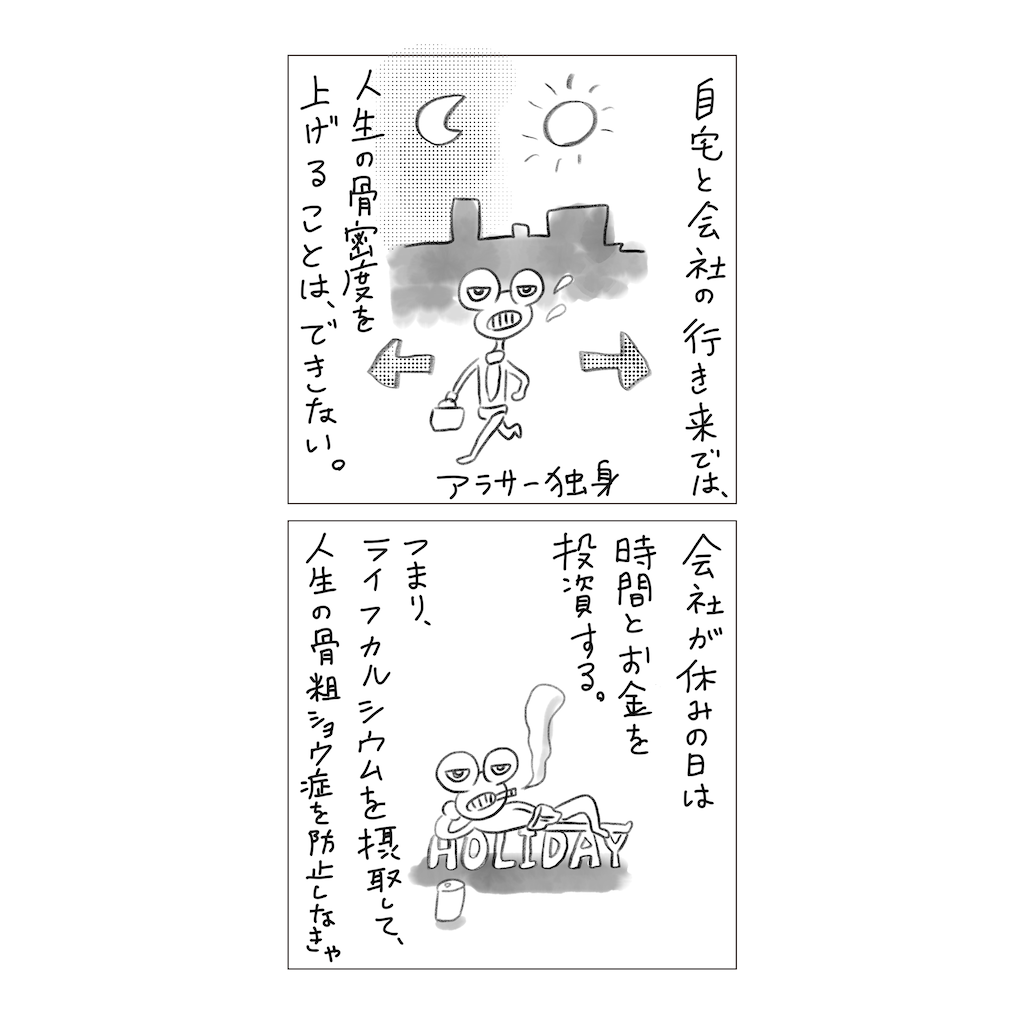 自宅と会社の行き来では、
人生の骨密度を
上げることは、できない。
アラサー独身
会社が休みの日は
時間とお金を
投資する。
HOLIDAY
つまり、
ライフカルシウムを摂取して、
人生の骨粗ショウ症を防止しなきゃ